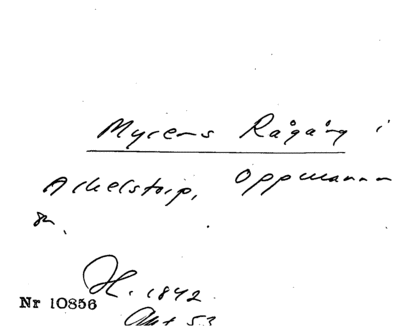 Myrens Rågång i
Arkelstorp, Oppmanna
sn.
H. 1842
Nr 10856
Akt 53